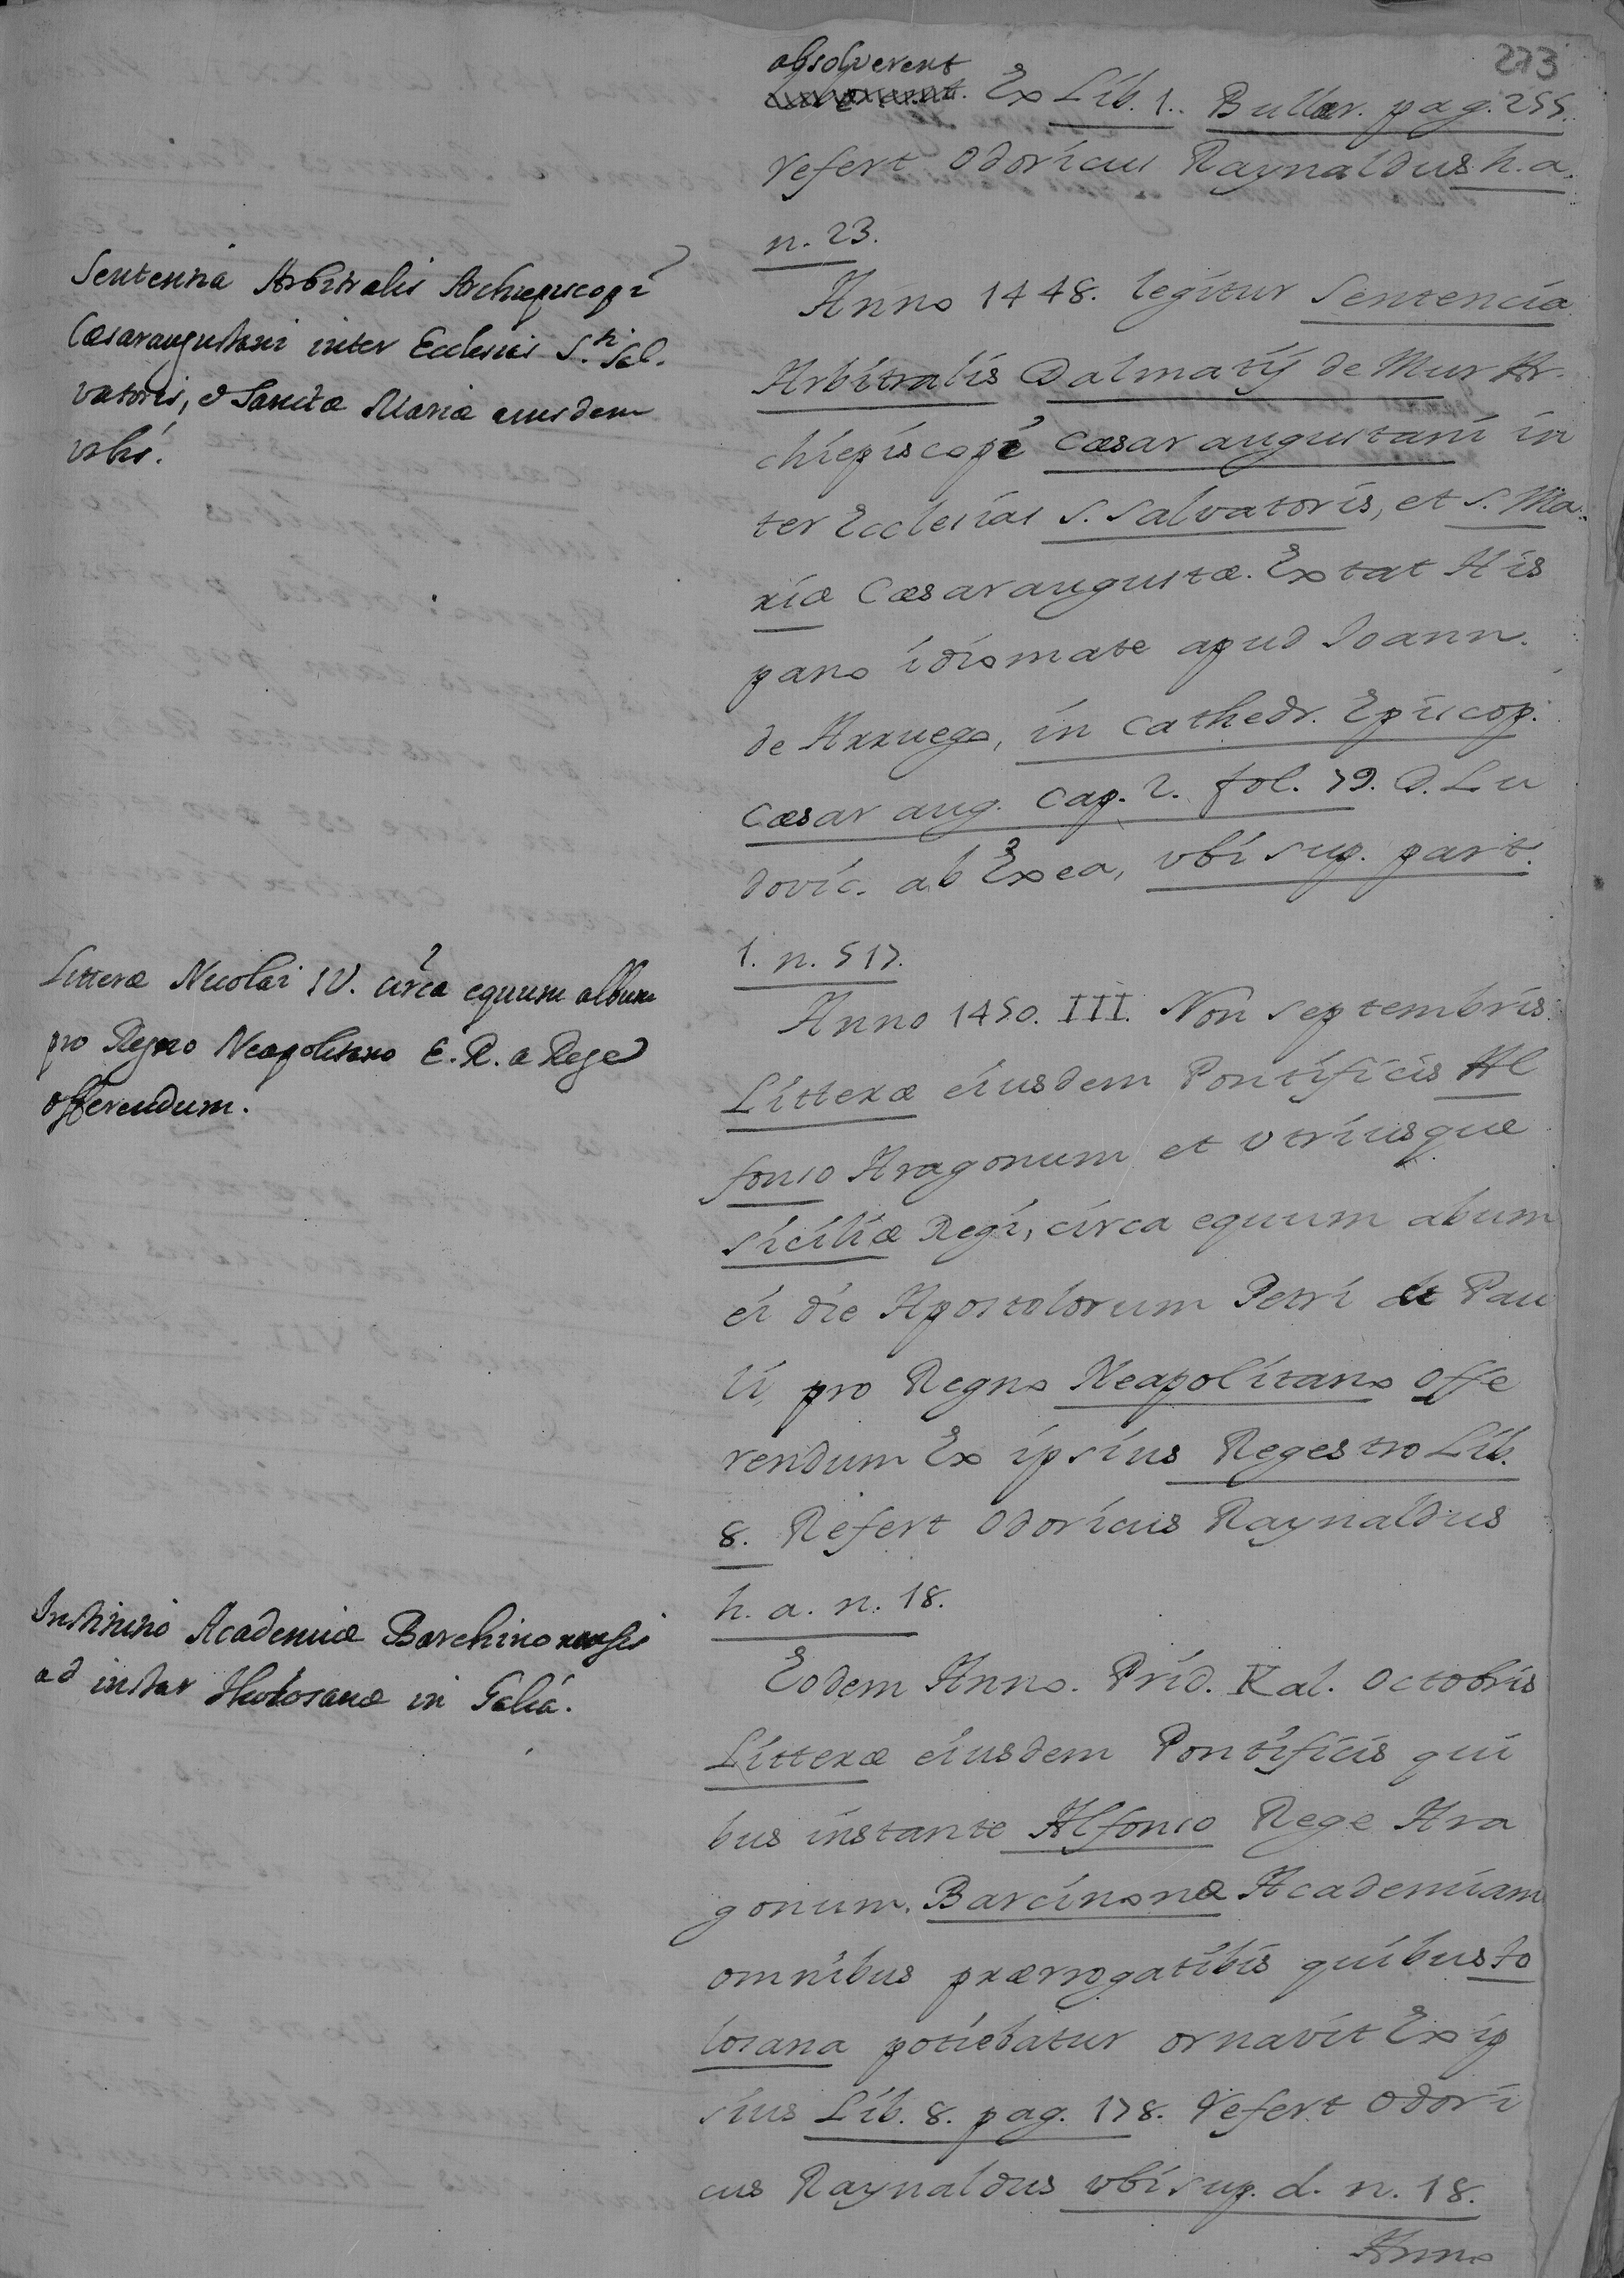 273
absolverent
Ex Lib. 1. Bullar. pag. 255.
refert Odoricus Raynaldus h. a.
n. 23.
Sententia Arbitralis Archiepiscopi
Cæsaraugustani inter Ecclesias S.ti Sal-
vatoris, et Sanctæ Mariæ eiusdem
vrbis.
Anno 1448. legitur Sentencia
Arbitralis Dalmatij de Mur Ar-
chiepiscopi Cæsaraugustani in
ter Ecclesias S. Salvatoris, et S. Ma-
riæ Cæsaraugustæ. Extat His
pano idiomate apud Ioann.
de Arruego, in Cathedr. Episcop.
Cæsaraug. Cap. 2. fol. 79. D. Lu
dovic. ab Exea, vbi sup. part.
1. n. 517.
Litteræ Nicolai IV. circa equum album
pro Regno Neapolitano E. R. a Rege
offerendum.
Anno 1450. III. Non Septembris
Litteræ eiusdem Pontificis Al
fonso Aragonum et Vtriusque
Siciliæ Regi, circa equum abum
ei die Apostolorum Petri et Pau
li, pro Regno Neapolitano Offe
rendum Ex ipsius Regestro Lib.
8. Refert Odoricus Raynaldus
h. a. n. 18.
Institutio Academiæ Barchinonensis
ad instar Tholosanæ in Galia.
Eodem Anno. Prid. Kal. Octobris
Litteræ eiusdem Pontificis qui
bus instante Alfonso Rege Ara
gonum. Barcinonæ Academiam
omnibus prærrogatibis quibus To
losana potiebatur ornavit Ex ip
sius Lib. 8. pag. 178. refert Odori
cus Raynaldus vbi sup. d. n. 18.
Anno